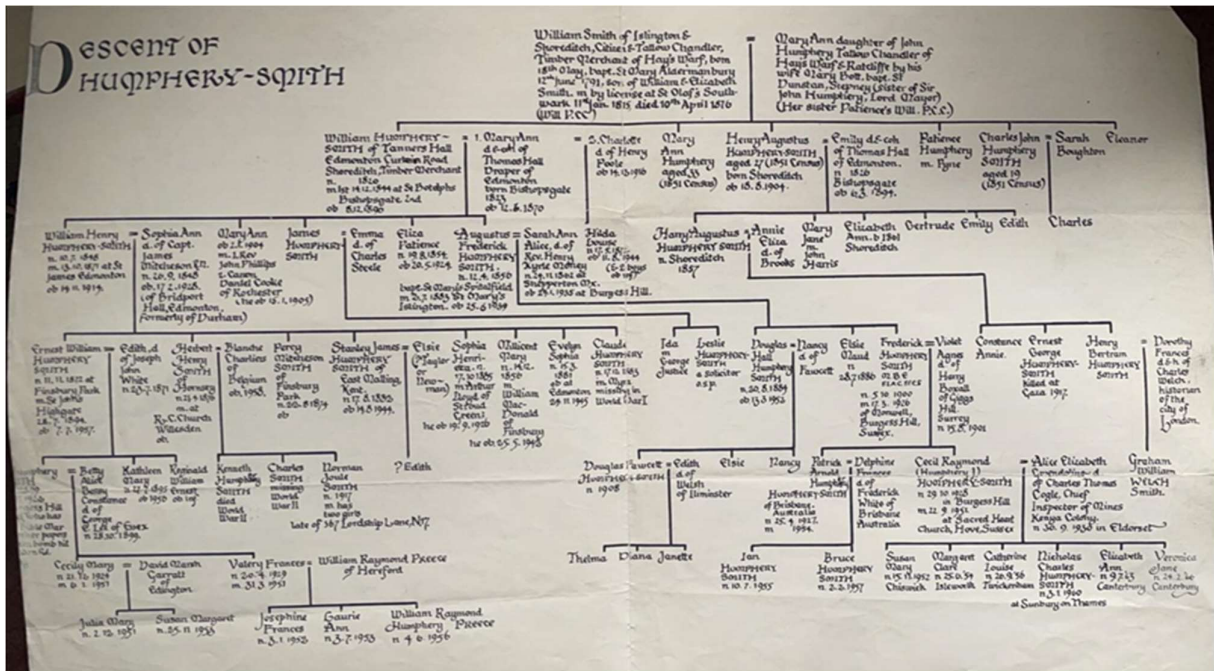 DESCENT OF
HUMPHERY-SMITH
William Smith of Islington &
Shoreditch, Citizen & Tallow Chandler,
Timber Merchant of Hay's Warf, born
18th May, bapt. St Mary Aldermanbury
12th June 1791, son of William & Elizabeth
Smith. m by license at St Olof's South-
wark 11th Jan. 1815 died 10th April 1876
(Will P.C.C)
=
Mary Ann daughter of John
Humphery Tallow Chandler of
Hay's Warf & Ratcliffe by his
wife Mary Bott, bapt. St
Dunstan, Stepney (sister of Sir
John Humphery, Lord Mayor)
(Her sister Patience's Will. P.C.C.)
William HUMPHERY-
SMITH of Tanners Hall
Edmonton Curtain Road
Shoreditch, Timber Merchant
n. 1820
m 1st 14.12.1844 at St Botolphs
Bishopsgate 2nd
ob 8.12.1896
= 1. Mary Ann
d & coh of
Thomas Hall
Draper of
Edmonton
born Bishopsgate
1823
ob 12.6.1870
= 2. Charlotte
d of Henry
Poole
ob 14.13.1916
Mary
Ann
Humphery
aged 33
(1851 Census)
Henry Augustus
HUMPHERY-SMITH
aged 27 (1851 Census)
born Shoreditch
ob 18.8.1904.
= Emily d & coh
of Thomas Hall
of Edmonton.
n 1826
Bishopsgate
ob 6.3.1894.
Patience
Humphery
m. Pyne
Charles John
Humphery
SMITH
aged 19
(1851 Census)
= Sarah
Boughton
Eleanor
William Henry
HUMPHERY-SMITH
n. 10.7.1848
m. 13.10.1871 at St
James Edmonton
ob 14.11.1914.
= Sophia Ann
d. of Capt.
James
Mitcheson
n. 20.9.1848
ob. 17.2.1928.
(of Bridport
Hall, Edmonton,
formerly of Durham)
Mary Ann
ob 2.2.1904
m. 1. Rev
John Phillips
2. Canon
Daniel Cooke
of Rochester
(he ob 15.1.1904)
James
HUMPHERY
SMITH
= Emma
d. of
Charles
Steele
Eliza
Patience
n 19.8.1854
ob 20.5.1924
Augustus
Frederick
HUMPHERY
SMITH.
n 12.4.1856
bapt. St Mary's Spitalfield
m 20.7.1883 St Mary's
Islington. ob 25.6.1934
= Sarah Ann
Alice, d. of
Rev. Henry
Kyrle Morley
n 24.11.1862 at
Shepperton Mx.
ob 29.1.1935 at Burgess Hill.
Hilda
Louise
ob 11.8.1944
Harry Augustus
HUMPHERY SMITH
n. Shoreditch
1857
= Annie
Eliza
d. of
Brooks
Mary
Jane
m.
John
Harris
Elizabeth
Ann. b 1861
Shoreditch
Gertrude
Emily
Edith
Charles
Ernest William
HUMPHERY
SMITH
n. 11.11.1872 at
Finsbury Park
m. St Johns
Highgate
28.7.1894
ob 7.7.1957.
= Edith, d
of Joseph
John
White
n 23.7.1871
Herbert
Henry
SMITH
of
Hornsey
m. at
R.C. Church
Willesden
ob.
= Blanche
Charlins
of
Belgium
ob, 1963.
Percy
Mitcheson
SMITH
of
Finsbury
Park
n. 20.8.1874
ob
Stanley James
HUMPHERY
SMITH of
East Malling,
Kent
n 17.8.1882
ob 19.8.1944.
= Elsie
(? Taylor
or
New-
man)
Sophia
Henri-
etta.
17.10.1885
m. Arthur
Lloyd of
Stroud
Green.
he ob 19.9.1926
Millicent
Mary
m.
William
Mac-
Donald
of
Finsbury
he ob. 25.5.1943
Evelyn
Sophia
n 15.3.
1881
ob at
Edmonton
28.11.1945
Claude
HUMPHERY
SMITH
m. Myra
missing in
World War I
Ida
m
George
Justice
Leslie
HUMPHERY
SMITH
a solicitor
o.s.p.
Douglas
Hall
Humphery
SMITH
n. 20.8.1884
ob 13.8.1952
= Nancy
d of
Fawcett
Elsie
Maud
n
28.7.1886
Frederick
HUMPHERY
SMITH
O.B.E
n. 5.10.1900
m 17.3.1926
of Monwell,
Burgess Hill,
Sussex.
= Violet
Agnes
d of
Harry
Boxall
of Giggs
Hill.
Surrey
n 15.8.1901
Constance
Annie.
Ernest
George
HUMPHERY-
SMITH
killed at
Gaza 1917
Henry
Bertram
HUMPHERY
SMITH
= Dorothy
Frances
d & h of
Charles
Welch.
historian
of the
city of
London.
= Betty
Alice
Constance
d. of
George
E Lee of Essex
n 28.10.1899.
Kathleen
Mary
n 22.7.1895
ob 1950
Reginald
William
Ernest
ob inf
Kenneth
Humphery
SMITH
died
World
War II
Charles
SMITH
missing
World
War II
Norman
Joule
SMITH
n. 1917
m has
two girls
late of 367 Lordship Lane, N17
? Edith
Douglas Fawcett
HUMPHERY-SMITH
n 1908
= Edith
d. of
Welsh
of Ilminster
Elsie
Nancy
Patrick
Arnold
Humphery
HUMPHERY-SMITH
of Brisbane,
Australia
n 25.4.1927.
m 1954.
= Delphine
Frances
d of
Frederick
White of
Brisbane
Australia
Cecil Raymond
(Humphery J)
HUMPHERY-SMITH
n 29.10.1928
in Burgess Hill
m 22.9.1951
at Sacred Heart
Church, Hove, Sussex
= Alice Elizabeth
Gwendoline d.
of Charles Thomas
Cogle, Chief
Inspector of Mines
Kenya Colony.
n 30.9.1930 in Eldoret
Graham
William
WELCH
Smith.
Cecily Mary
n 21.12.1924
m 6.1.1957
= David Marsh
Garratt
? of
Edington.
Valery Frances
n 20.4.1929
m 31.3.1951
= William Raymond PREECE
of Hereford
Thelma
Diana
Janette
Ian
HUMPHERY
SMITH
n 10.7.1955
Bruce
HUMPHERY
SMITH
n 2.2.1957
Susan
Mary
n 15.12.1952
Chiswick
Margaret
Clare
n 25.6.54
Isleworth
Catherine
Louise
n 20.9.56
Twickenham
Nicholas
Charles
HUMPHERY-
SMITH
n 3.1.1960
at Sunbury on Thames
Elizabeth
Ann
n 9.7.63
Canterbury
Veronica
Jane
n 24.2.66
Canterbury
Julia Mary
n. 2.12.1951
Susan Margaret
n. 25.11.1953
Josephine
Frances
n. 3.1.1952
Laurie
Ann
n 3.7.1953
William Raymond
Humphery PREECE
n 4.6.1956